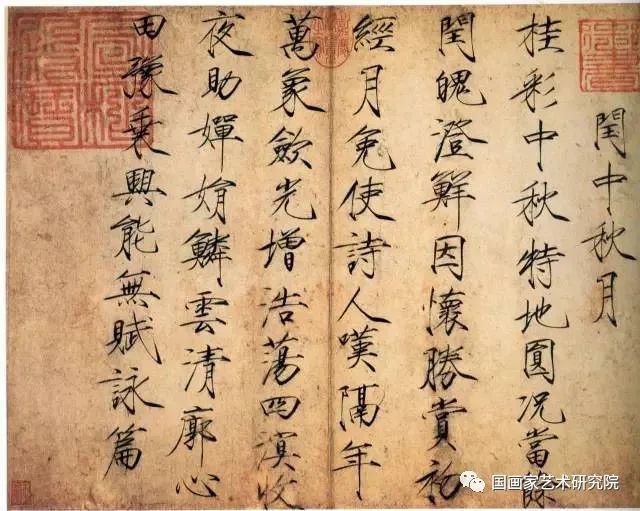 閏中秋月
桂彩中秋特地圓況當餘
閏魄澄鮮因懷勝賞初
經月免使詩人嘆隔年
萬象斂光增浩蕩四溟收
夜助嬋娟鱗雲清廓心
田豫乘興能無賦詠篇
国画家艺术研究院